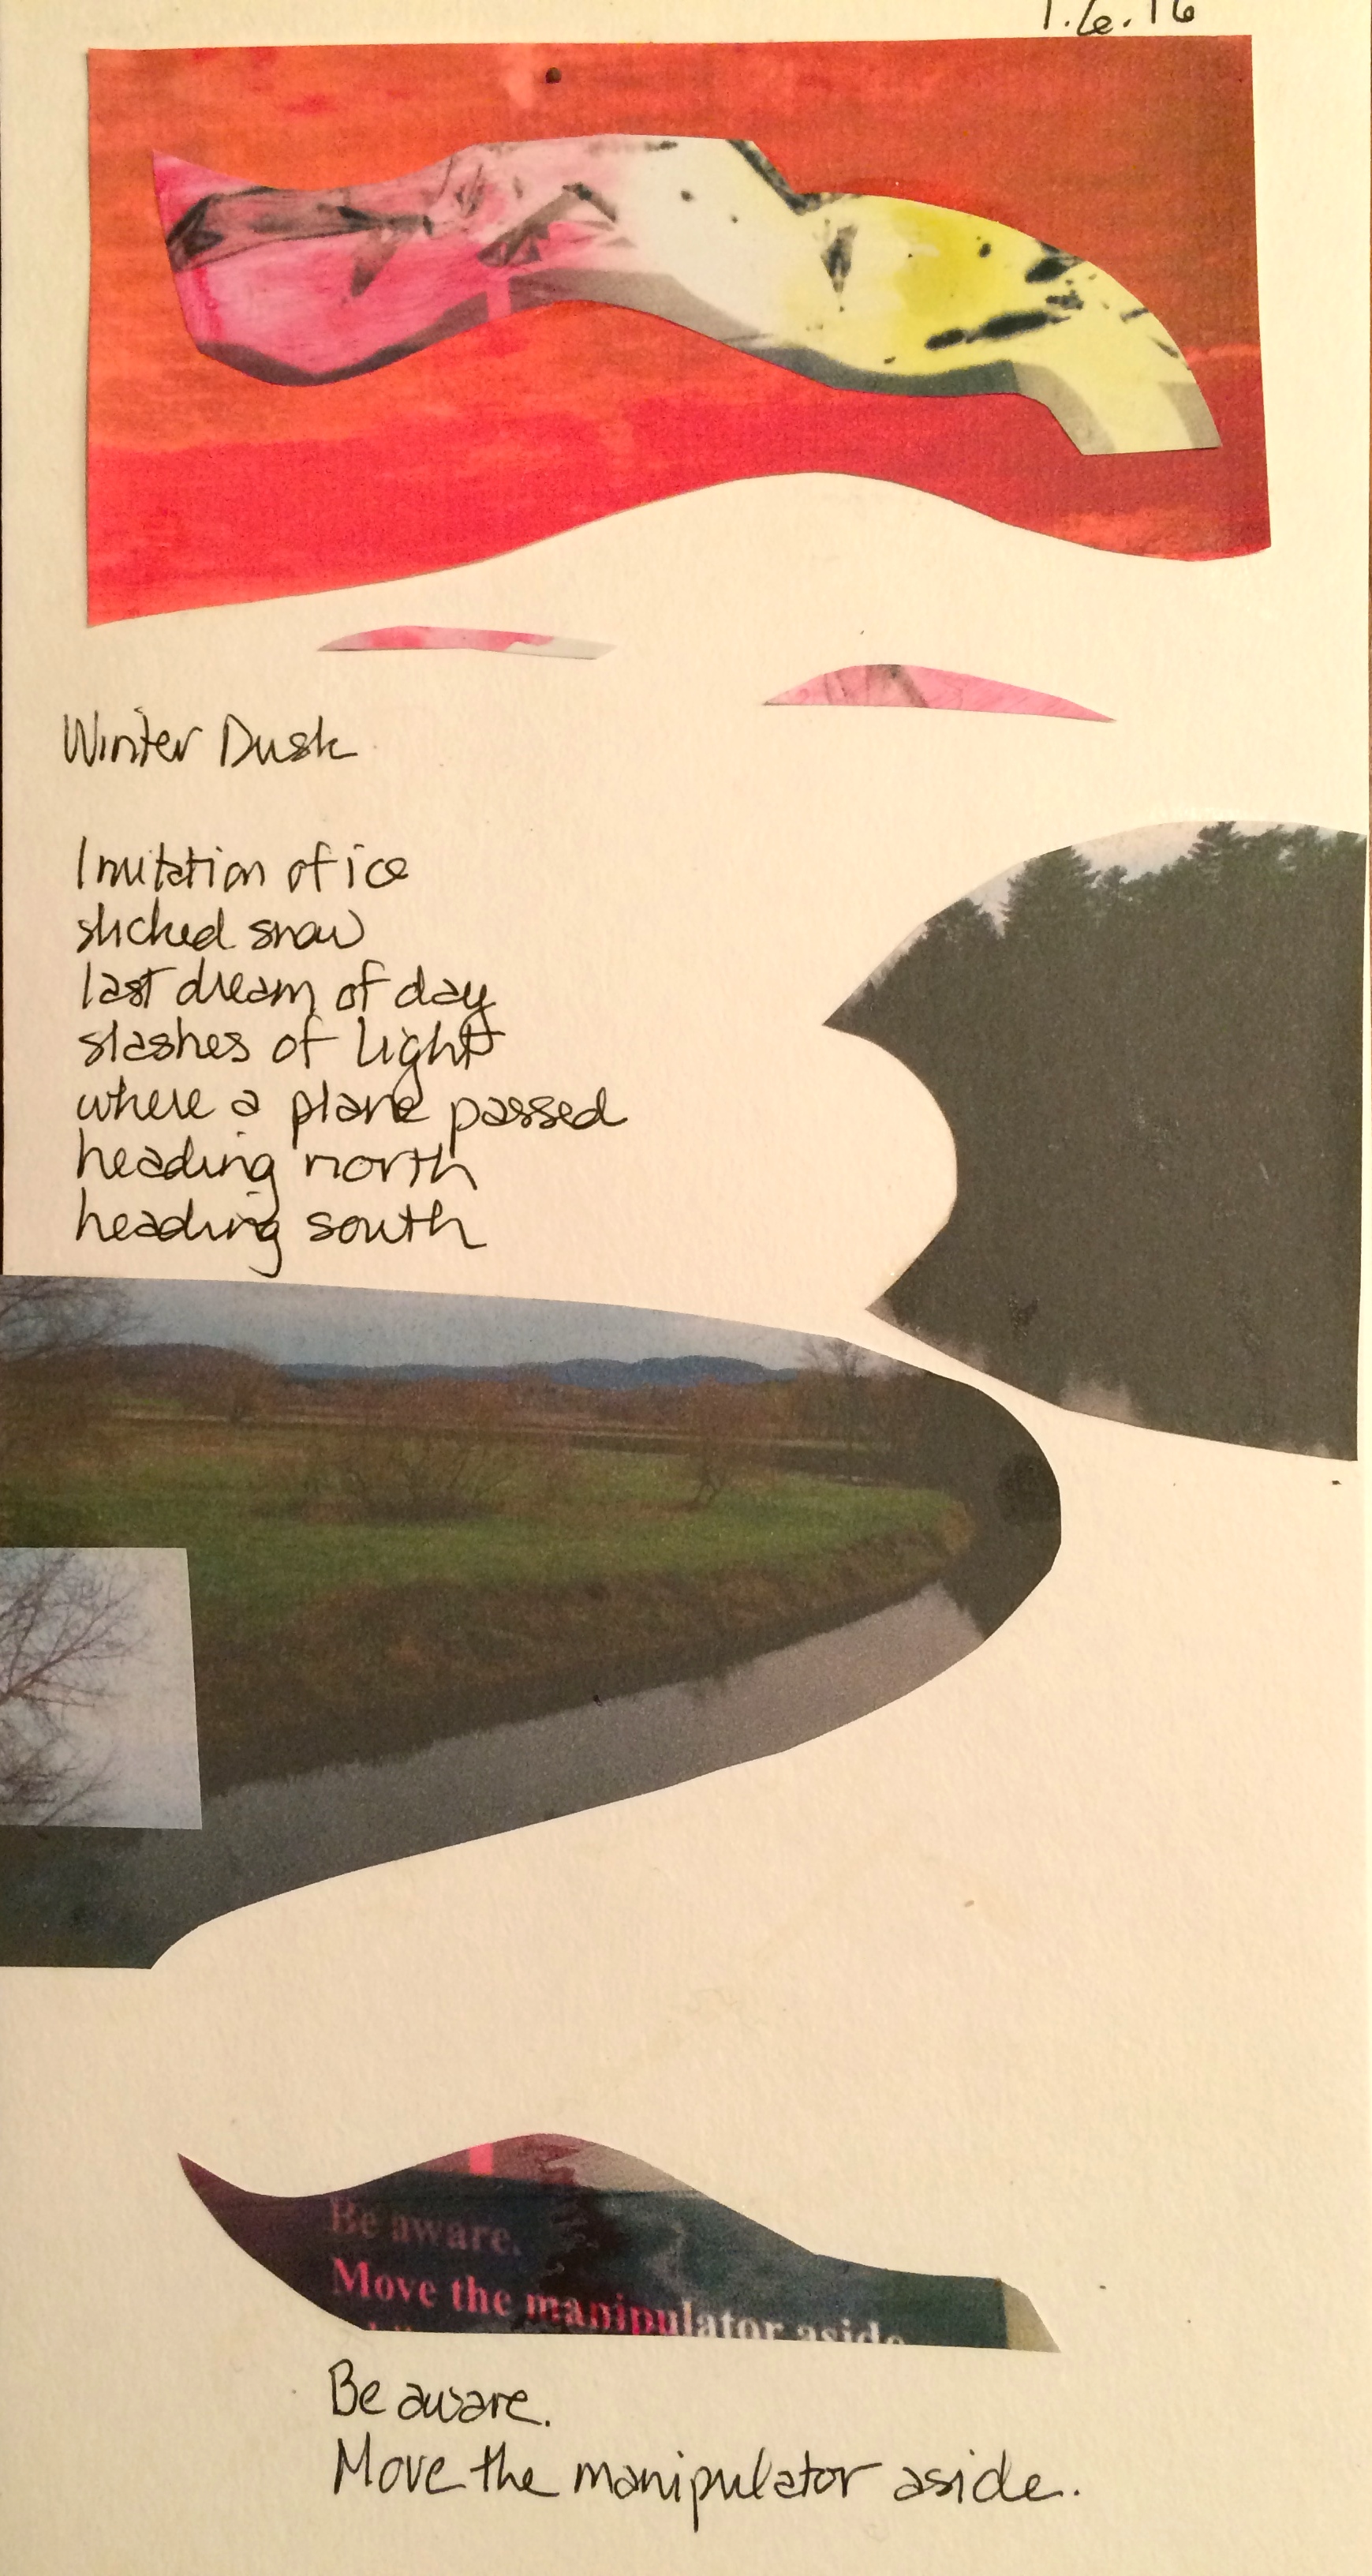 1.6.16
Winter Dusk
Imitation of ice
slicked snow
last dream of day
slashes of light
where a plane passed
heading north
heading south
Be aware.
Move the manipulator aside
Be aware.
Move the manipulator aside.